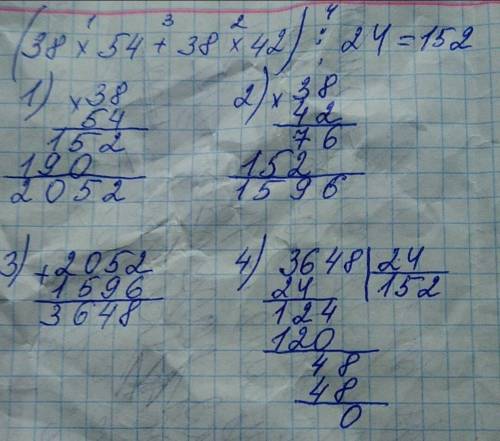 1 3 2 4
(38 × 54 + 38 × 42) : 24 = 152
1) × 38
54
152
190
2052
2) × 38
42
76
152
1596
3) + 2052
1596
3648
4) 3648 | 24
24 152
124
120
48
48
0